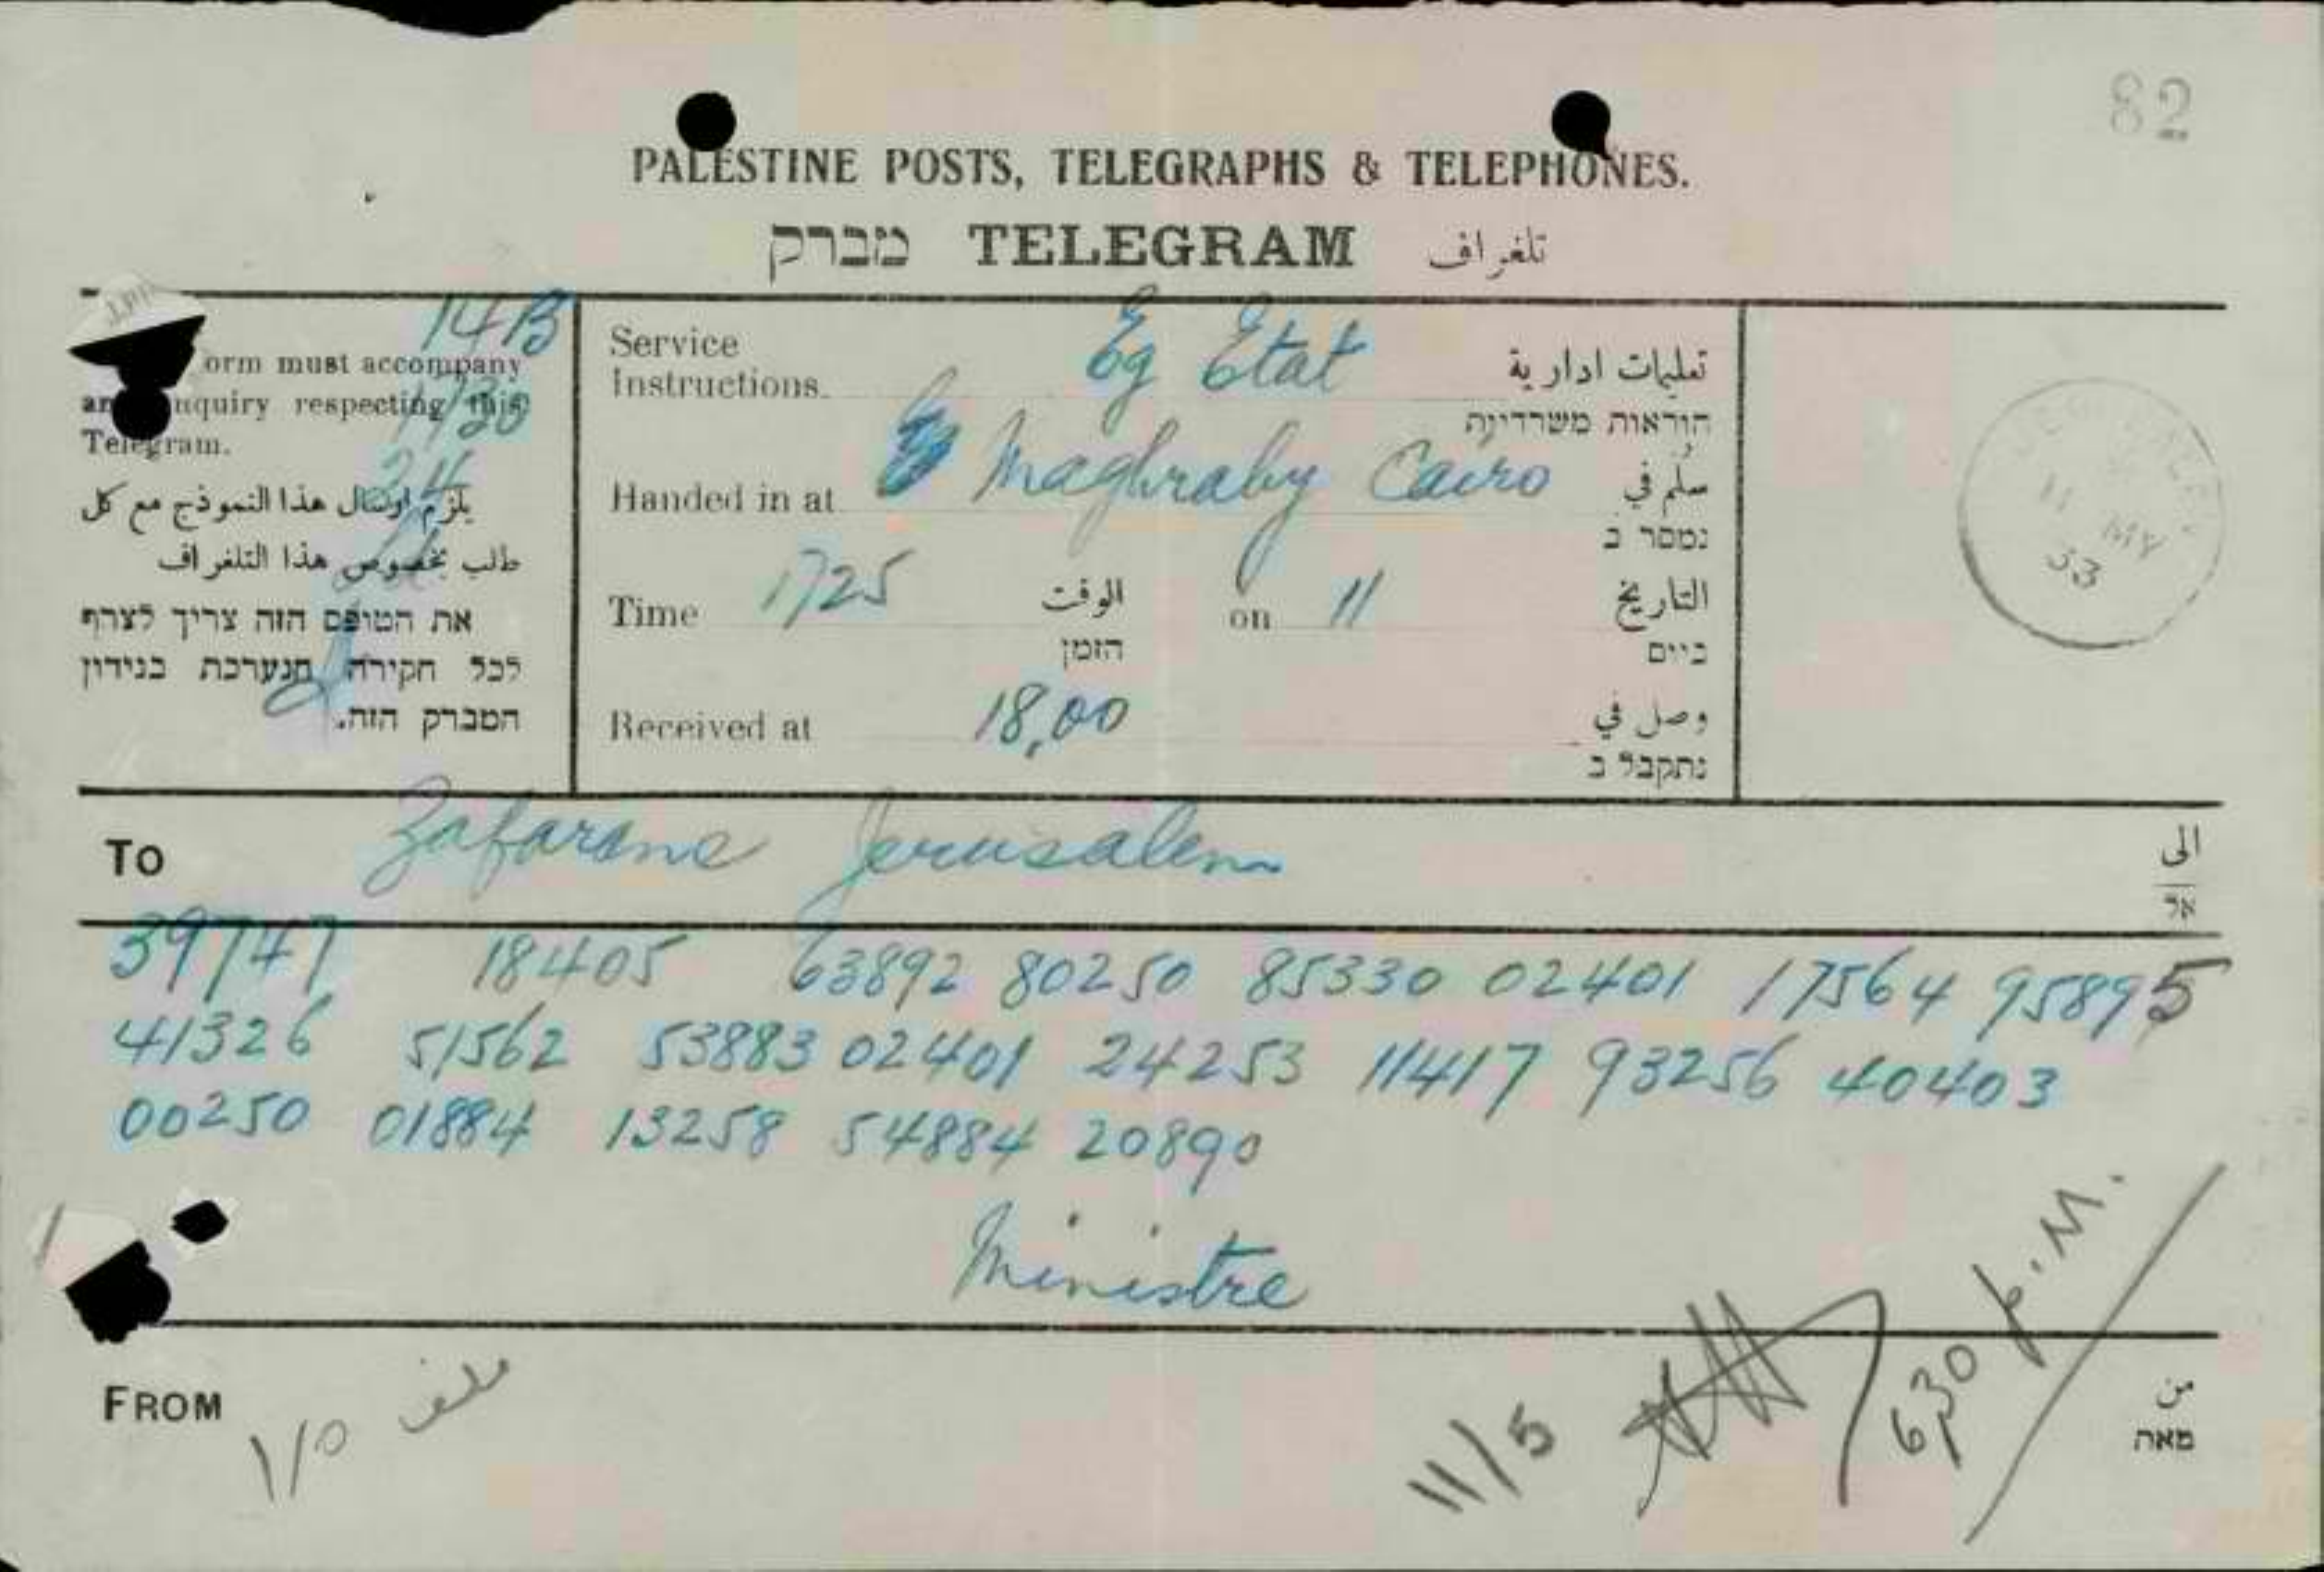 82
PALESTINE POSTS, TELEGRAPHS & TELEPHONES.
מברק TELEGRAM تلغراف
14B
orm must accompany
nquiry respecting this
Telegram.
يلزم ارسال هذا النموذج مع كل
طلب بخصوص هذا التلغراف
את הטופס הזה צריך לצרף
לכל חקירה הנערכת בנידון
המברק הזה.
Service Instructions Eg Etat تعليمات ادارية
הוראות משרדיות
Handed in at Maghraby Cairo سلم في
נמסר ב
Time 1725 الوقت on 11 التاريخ
הזמן ביום
Received at 18,00 وصل في
נתקבל ב
11 MY
33
To Zafarane Jerusalem الى
אל
39747 18405 63892 80250 85330 02401 17564 95895
41326 51562 53883 02401 24253 11417 93256 40403
00250 01884 13258 54884 20890
Ministre
FROM ملف ١/٥ من
מאת
11/5
630 p.M.